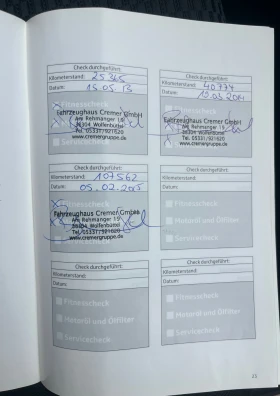 Check durchgeführt:
Kilometerstand: 25 365
Datum: 15.05.13
Fitnesscheck
Fahrzeughaus Cremer GmbH
Am Rehmanger 15
38304 Wolfenbüttel
Tel. 05331/921620
www.cremergruppe.de
Servicecheck
Check durchgeführt:
Kilometerstand: 40774
Datum: 19.03.2014
Fitnesscheck
Fahrzeughaus Cremer GmbH
Am Rehmanger 15
38304 Wolfenbüttel
Tel. 05331/921620
www.cremergruppe.de
Servicecheck
Check durchgeführt:
Kilometerstand: 107562
Datum: 05.02.2015
Fahrzeughaus Cremer GmbH
Am Rehmanger 15
38304 Wolfenbüttel
Tel. 05331/921620
www.cremergruppe.de
Servicecheck
Check durchgeführt:
Kilometerstand:
Datum:
Fitnesscheck
Motoröl und Ölfilter
Servicecheck
Check durchgeführt:
Kilometerstand:
Datum:
Fitnesscheck
Motoröl und Ölfilter
Servicecheck
Check durchgeführt:
Kilometerstand:
Datum:
Fitnesscheck
Motoröl und Ölfilter
Servicecheck
25